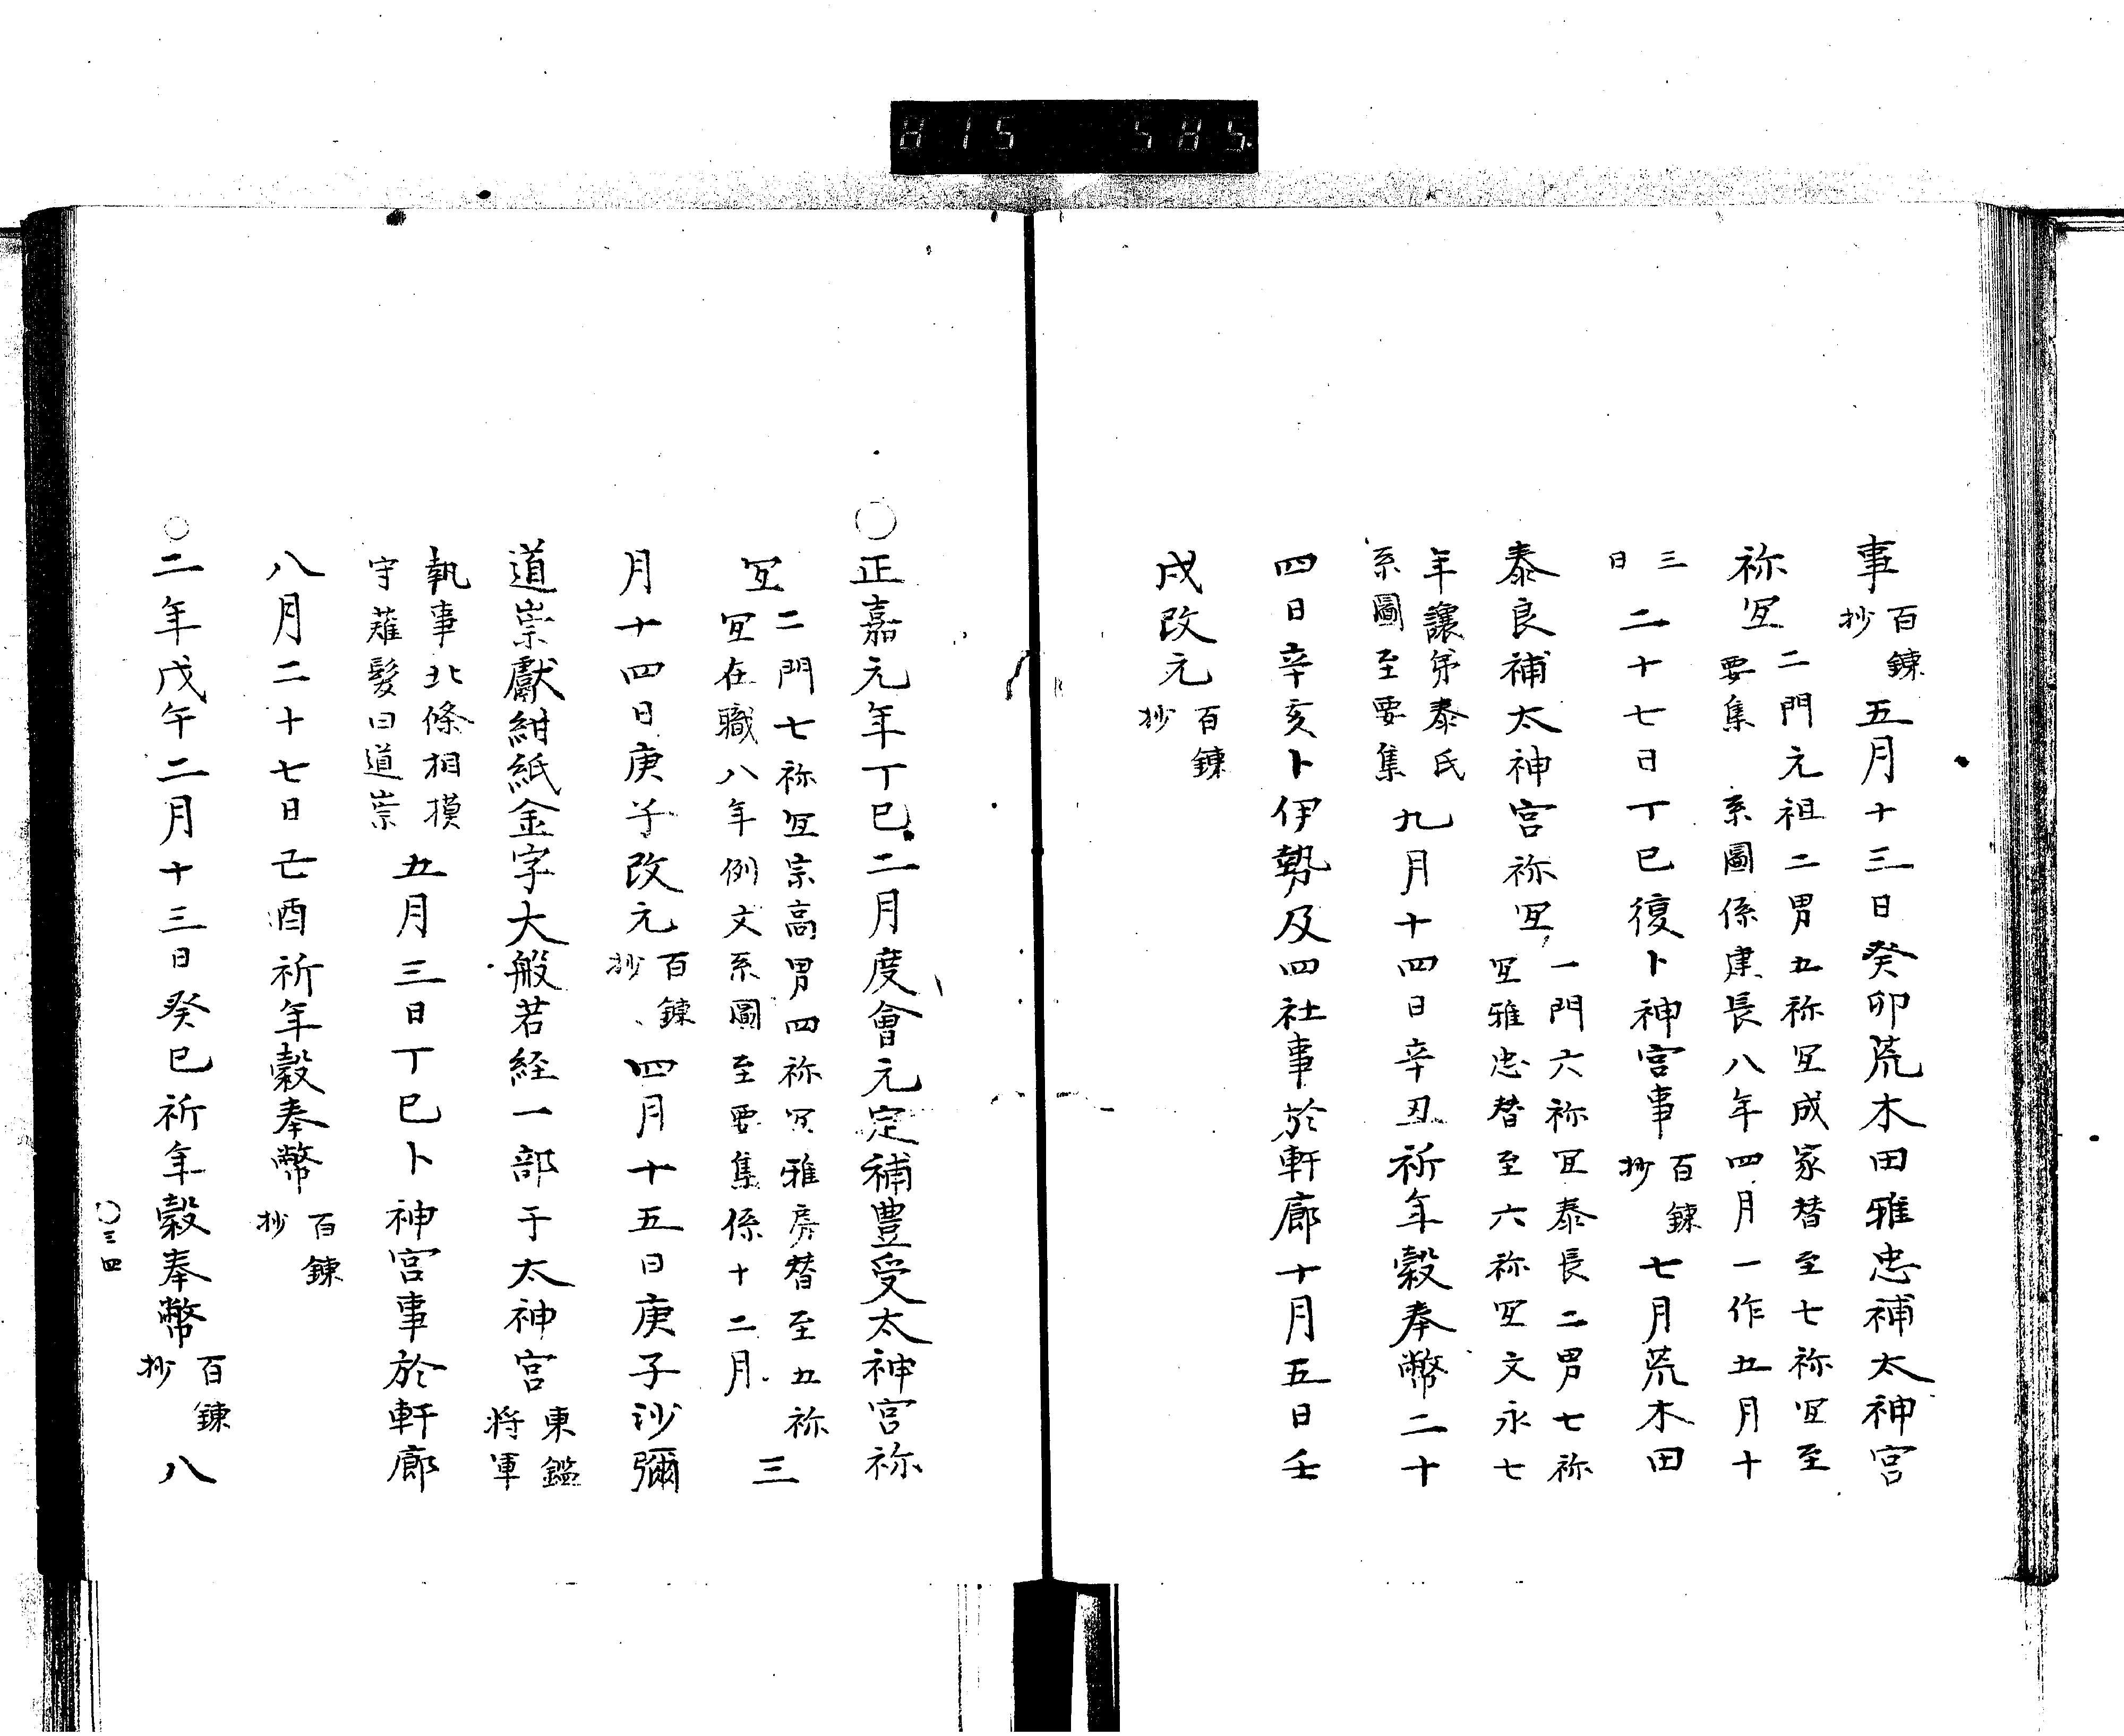 815 585
事 百鍊抄 五月十三日癸卯荒木田雅忠補太神宮
祢冝 二門元祖二男五祢冝成家替至七祢冝至要集 系圖係建長八年四月一作五月十
三日 二十七日丁巳復卜神宮事 百鍊抄 七月荒木田
泰良補太神宮祢冝 一門六祢冝泰長二男七祢冝雅忠替至六祢冝文永七
年讓弟泰氏系圖至要集 九月十四日辛丑祈年穀奉幣二十
四日辛亥卜伊勢及四社事於軒廊十月五日壬
戌改元 百鍊抄
○正嘉元年丁巳二月度會元定補豊受太神宮祢
冝 二門七祢冝宗高男四祢冝雅房替至五祢冝在職八年例文系圖至要集係十二月 三
月十四日庚子改元 百鍊抄 四月十五日庚子沙彌
道崇獻紺紙金字大般若経一部于太神宮 東鑑将軍
執事北條相摸守薙髮曰道崇 五月三日丁巳卜神宮事於軒廊
八月二十七日己酉祈年穀奉幣 百鍊抄
○二年戊午二月十三日癸巳祈年穀奉幣 百鍊抄 八
○三四